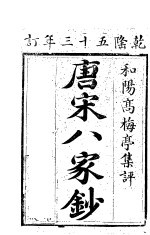 乾隆五十三年訂
和陽高梅亭集評
唐宋八家鈔